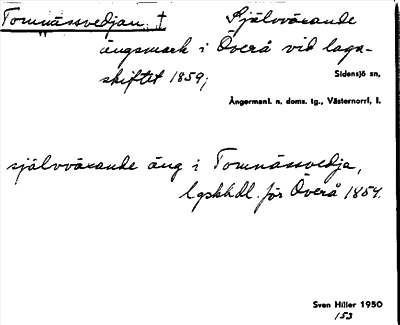 Tomnässvedjan. † Självväxande
ängsmark i Överå vid laga-
skiftet 1859;
Sidensjö sn,
Ångermanl. n. doms. tg., Västernorrl. l.
självväxande äng i Tomnässvedja,
lgskhdl. för Överå 1859.
Sven Hiller 1950
153